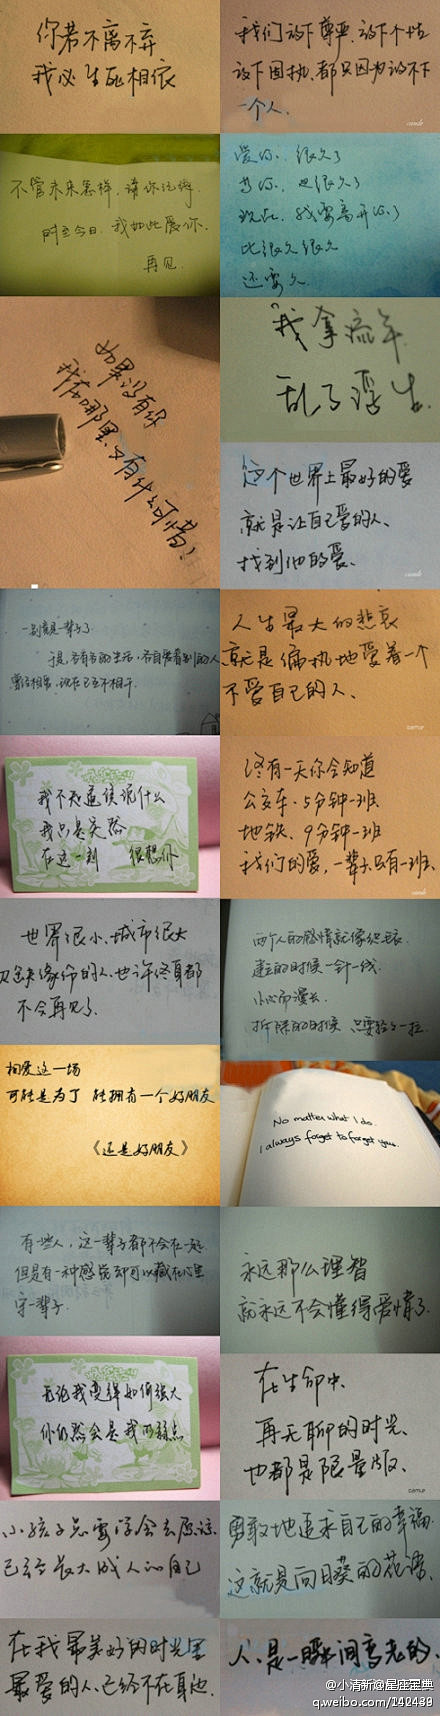 你若不离不弃
我必生死相依
我们放下尊严、放下个性
放下固执、都只因为放不下
一个人.
不管未来怎样,请你记得.
时至今日.我如此爱你.
再见.
爱你.很久了
等你.也很久了
现在.我要离开你了
比很久很久
还要久.
如果没有你
我在哪里.又有什么可惜!
我拿流年
乱了浮生.
这个世界上最好的爱
就是让自己爱的人、
找到他的爱、
一别竟是一辈子了.
于是,各有各的生活,各自爱着别的人
曾经相爱,现在已互不相干.
人生最大的悲哀
就是偏执地爱着一个
不爱自己的人、
我不知道该说什么
我只是突然
在这一刻 很想你
终有一天你会知道
公交车、5分钟一班
地铁、9分钟一班
我们的爱,一辈子只有一班、
世界很小、城市很大
没有缘份的人、也许终身都
不会再见了.
两个人的感情就像织毛衣
建立的时候一针一线.
小心而漫长.
拆除的时候 只要轻轻一拉.
相爱这一场
可能是为了 能拥有一个好朋友
《还是好朋友》
No matter what I do.
I always forget to forget you.
有些人,这一辈子都不会在一起
但是有一种感觉却可以藏在心里
守一辈子.
永远那么理智
就永远不会懂得爱情了.
无论我变得如何强大
你仍然会是我的弱点
在生命中、
再无聊的时光、
也都是限量版、
小孩子只要学会去原谅
已经长大成人的自己
勇敢地追求自己的幸福.
这就是向日葵的花语.
在我最美好的时光里
最爱的人、已经不在身边.
人、是一瞬间变老的.
@小清新@星座宝典
q.weibo.com/142439